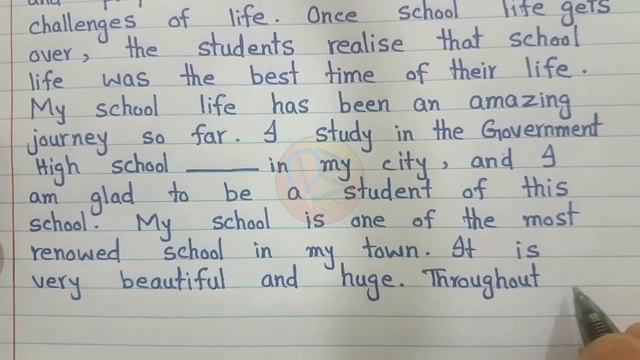 challenges of life. Once school life gets
over, the students realise that school
life was the best time of their life.
My school life has been an amazing
journey so far. I study in the Government
High school ——— in my city, and I
am glad to be a student of this
school. My school is one of the most
renowed school in my town. It is
very beautiful and huge. Throughout